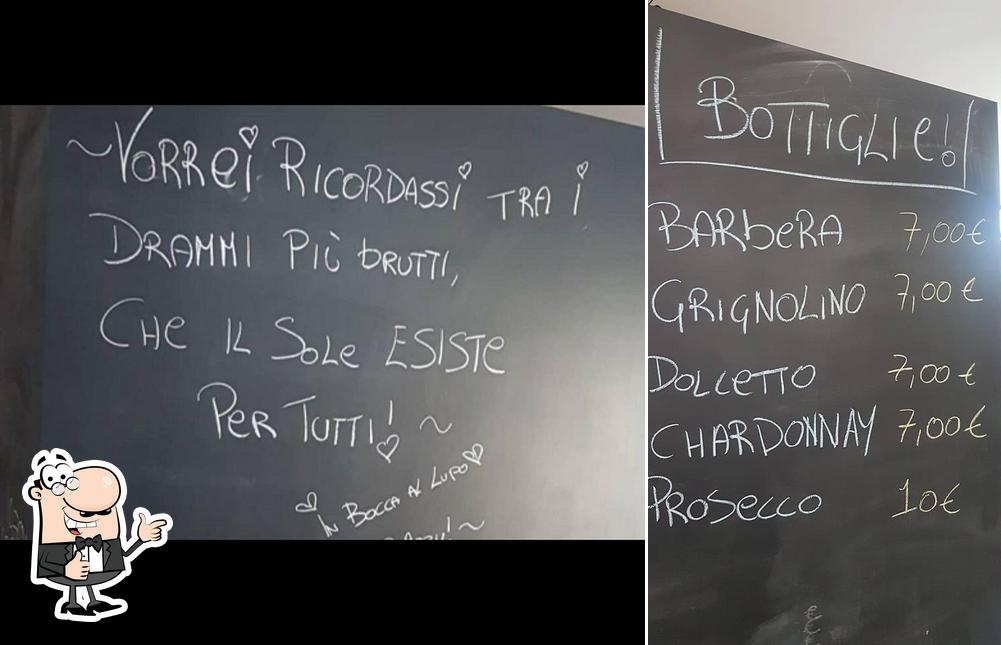 ~VORREI RICORDASSI TRA I
DRAMMI PIÙ BRUTTI,
CHE IL SOLE ESISTE
PER TUTTI! ~
IN BOCCA AL LUPO
BOTTIGLIE!
BARBERA 7,00€
GRIGNOLINO 7,00€
DOLCETTO 7,00€
CHARDONNAY 7,00€
PROSECCO 10€